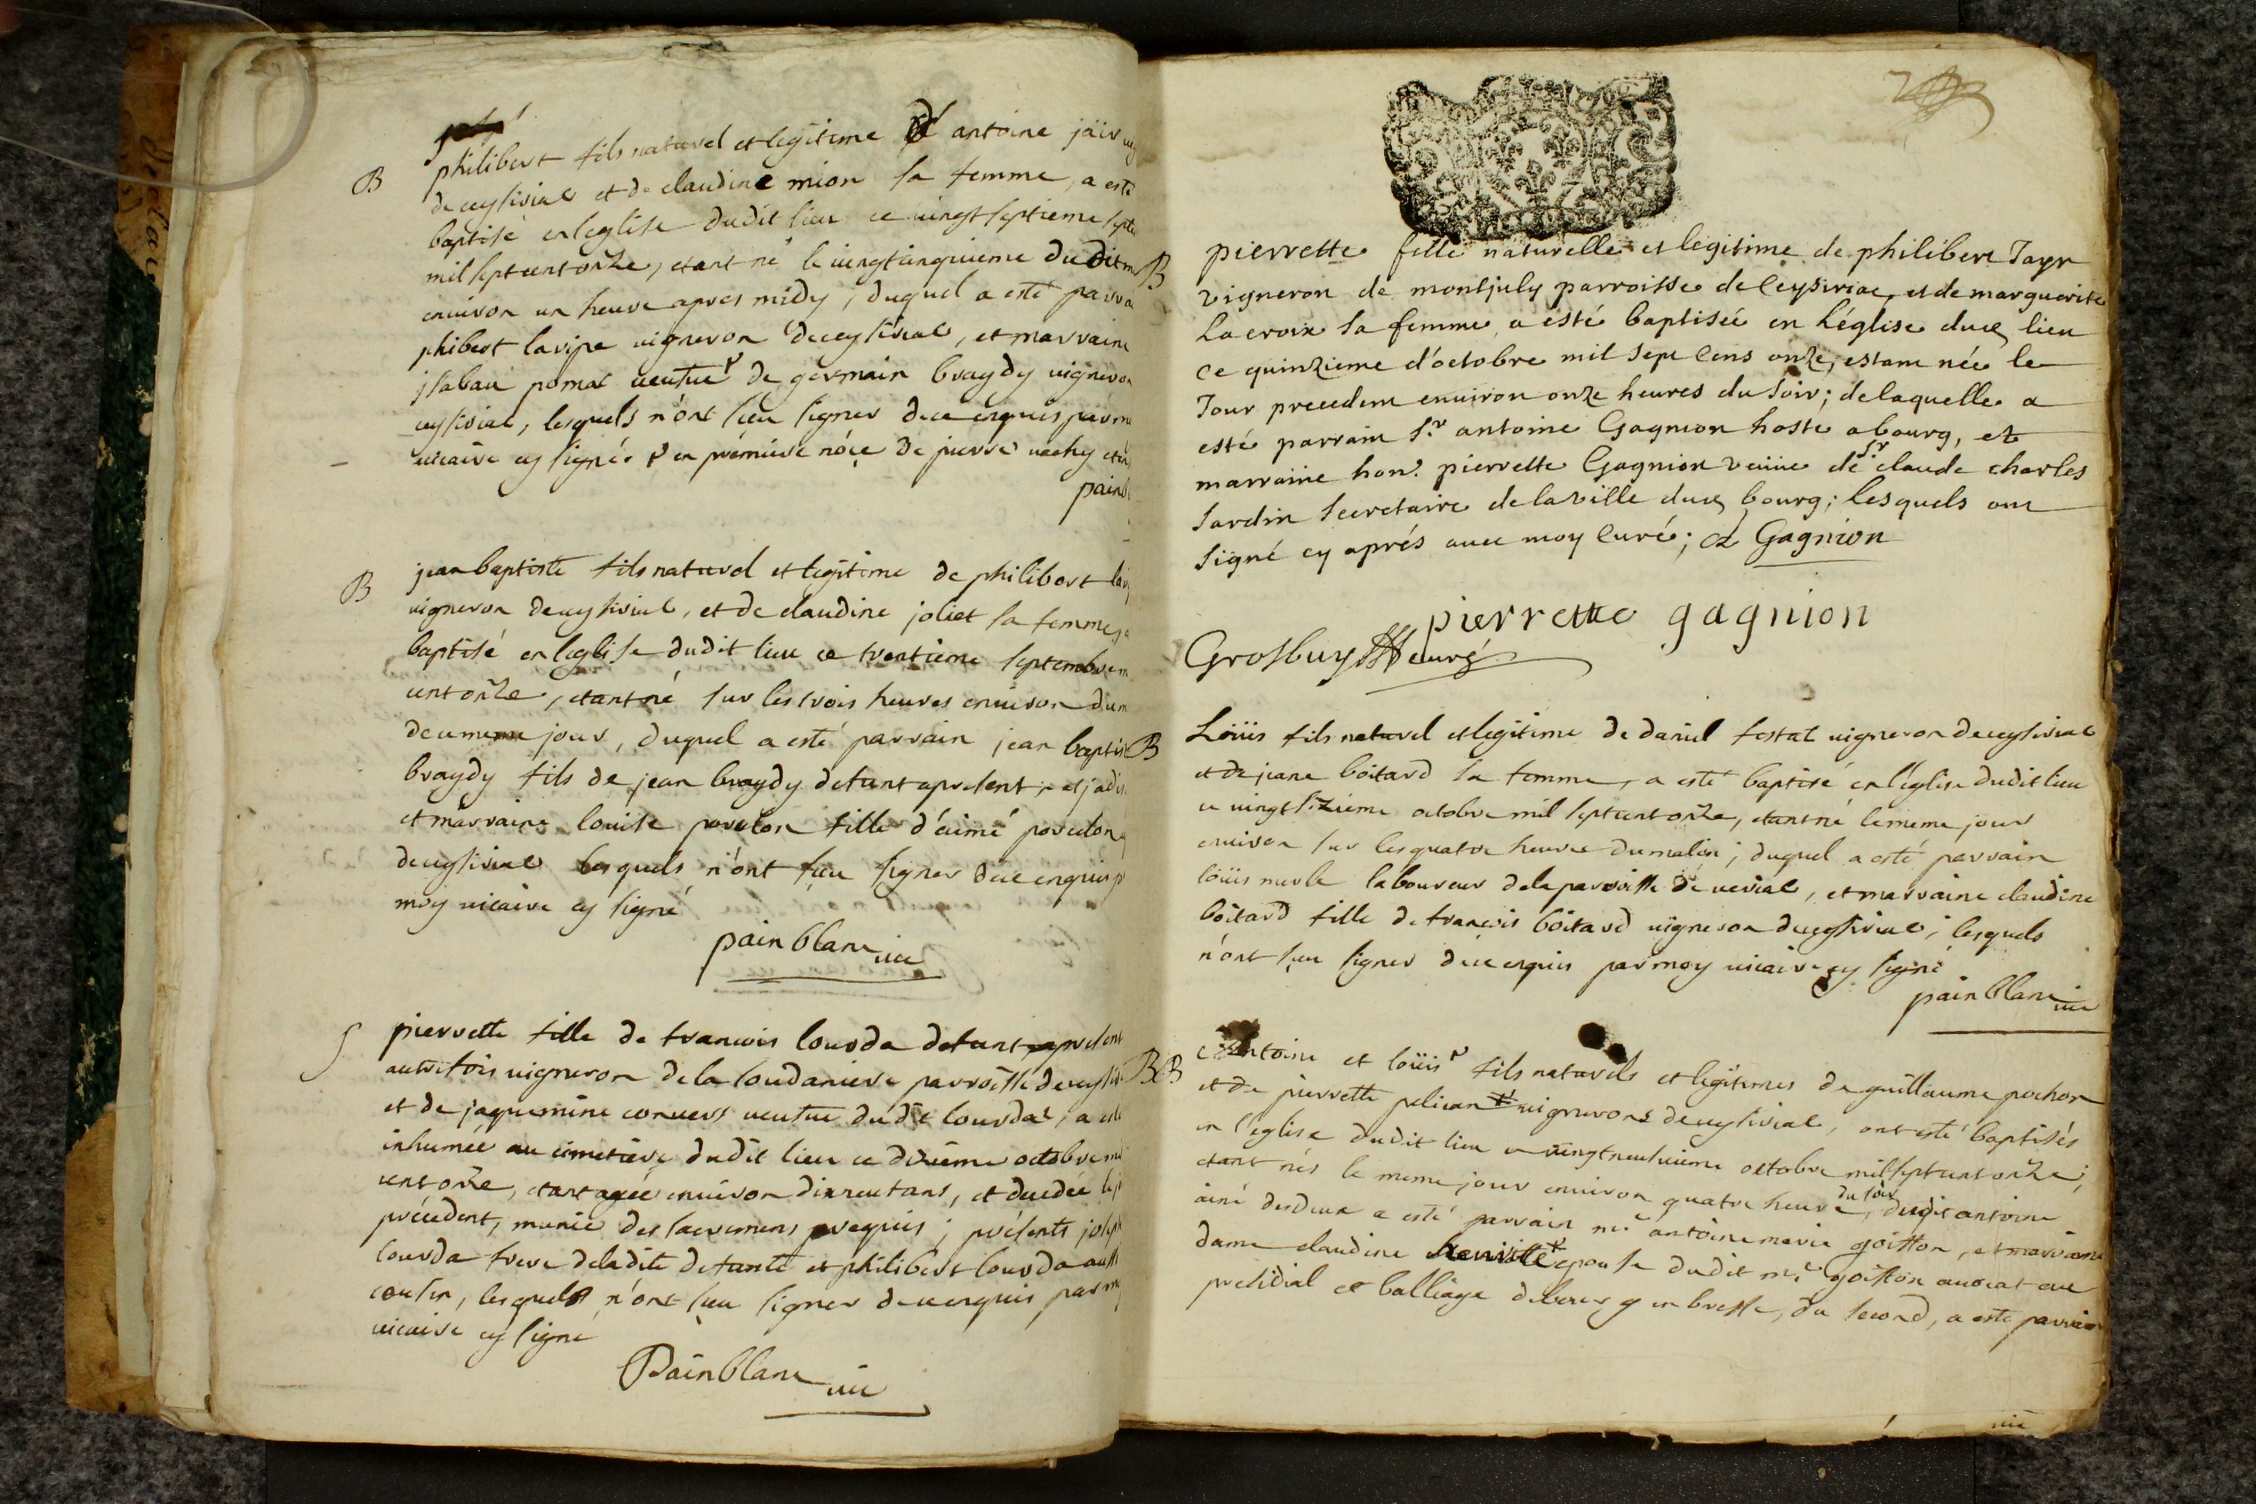 B
philibert fils naturel et legitime de antoine jäir
de ceysiriat et de claudine mion sa femme, a esté
baptisé en leglise dudit lieu ce vingt septieme septe
mil sept cent onze, etant né le vingtcinquieme du dit m
environ un heure apres midy, duquel a esté parra
phibert laripe vigneron de ceysiriat, et marraine
jsabau pomat veufue de germain braydy vigneron
ceysiriat, lesquels n'ont sceu signer de ce enquis par m
vicaire cy signé. en prémiere nóce de pierre
painb
B
jean baptiste fils naturel et legitime de philibert lar
vigneron de ceysiriat, et de claudine joliet sa femme, a
baptisé en leglise dudit lieu ce trentieme septembre m
cent onze, etant né sur les trois heures environ du m
de ce meme jour, duquel a esté parrain jean baptis
braydy fils de jean braydy defunt apresent, et jadis
et marraine louise porcelon fille d'aimé porcelon
de ceysiriat lesquels n'ont sceu signer de ce enquis p
moy vicaire cy signé
pain blanc vic
S
pierrette fille de francois lourda defunt apresent
autrefois vigneron de la soudaniere parroisse de ceysir
et de jaquemine convers veufue dudit lourdat, a esté
inhumée au cimetiere dudit lieu ce dixième octobre mil
cent onze, etant agée environ dixneuf ans, et decedée le j
précédent, munie des sacremens prequis; présents jose
lourda frere deladite defunte et philibert lourda aussi
cousin, lesquels n'ont sceu signer de ce enquis par m
vicaire cy signé
Painblanc vic
2
B
pierrette fille naturelle et legitime de philibert Jayr
vigneron de montjuly parroisse de Ceysiriac, et de marguerite
Lacroix sa femme a esté baptisée en l'église duct lieu
ce quinzieme d'octobre mil sept cens onze, estant née le
Jour precedent environ onze heures du soir; de laquelle a
esté parrain Sr. antoine Gagnion hoste a bourg, et
marraine hon. pierrette Gagnion veüve de Sr. claude charles
Jardin secretaire de la ville duct bourg; lesquels ont
signé cy aprés avec moy curé; A Gagnion
pierrette gagnion
Grosbuy curé
B
Loüis fils naturel et legitime de daniel festat vigneron de ceysiriat
et de jeane boitard sa femme, a esté baptisé en l'église dudit lieu
ce vingt sizieme octobre mil sept cent onze, etant né le meme jour
environ sur les quatre heures du matin; duquel a esté parrain
loüis merle laboureur de la parroisse de veriat, et marraine claudine
boitard fille de francois boitard vigneron de ceysiriat; lesquels
n'ont sceu signer de ce enquis par moy vicaire cy signé
pain blanc vic
B B
Antoine et loüis fils naturels et legitimes de guillaume pochon
et de pierrette pelican vignerons de ceysiriat, ont esté baptisés
en l'eglise dudit lieu ce vingtneufuieme octobre mil sept cent onze;
etant nés le meme jour environ quatre heure du soir, dudit antoine
ainé des deux a esté parrain mre antoine marie goisson, et marraine
dame claudine epouse dudit mre goisson avocat au
presidial et balliage de bourg en bresse, du second, a esté parrain
vic